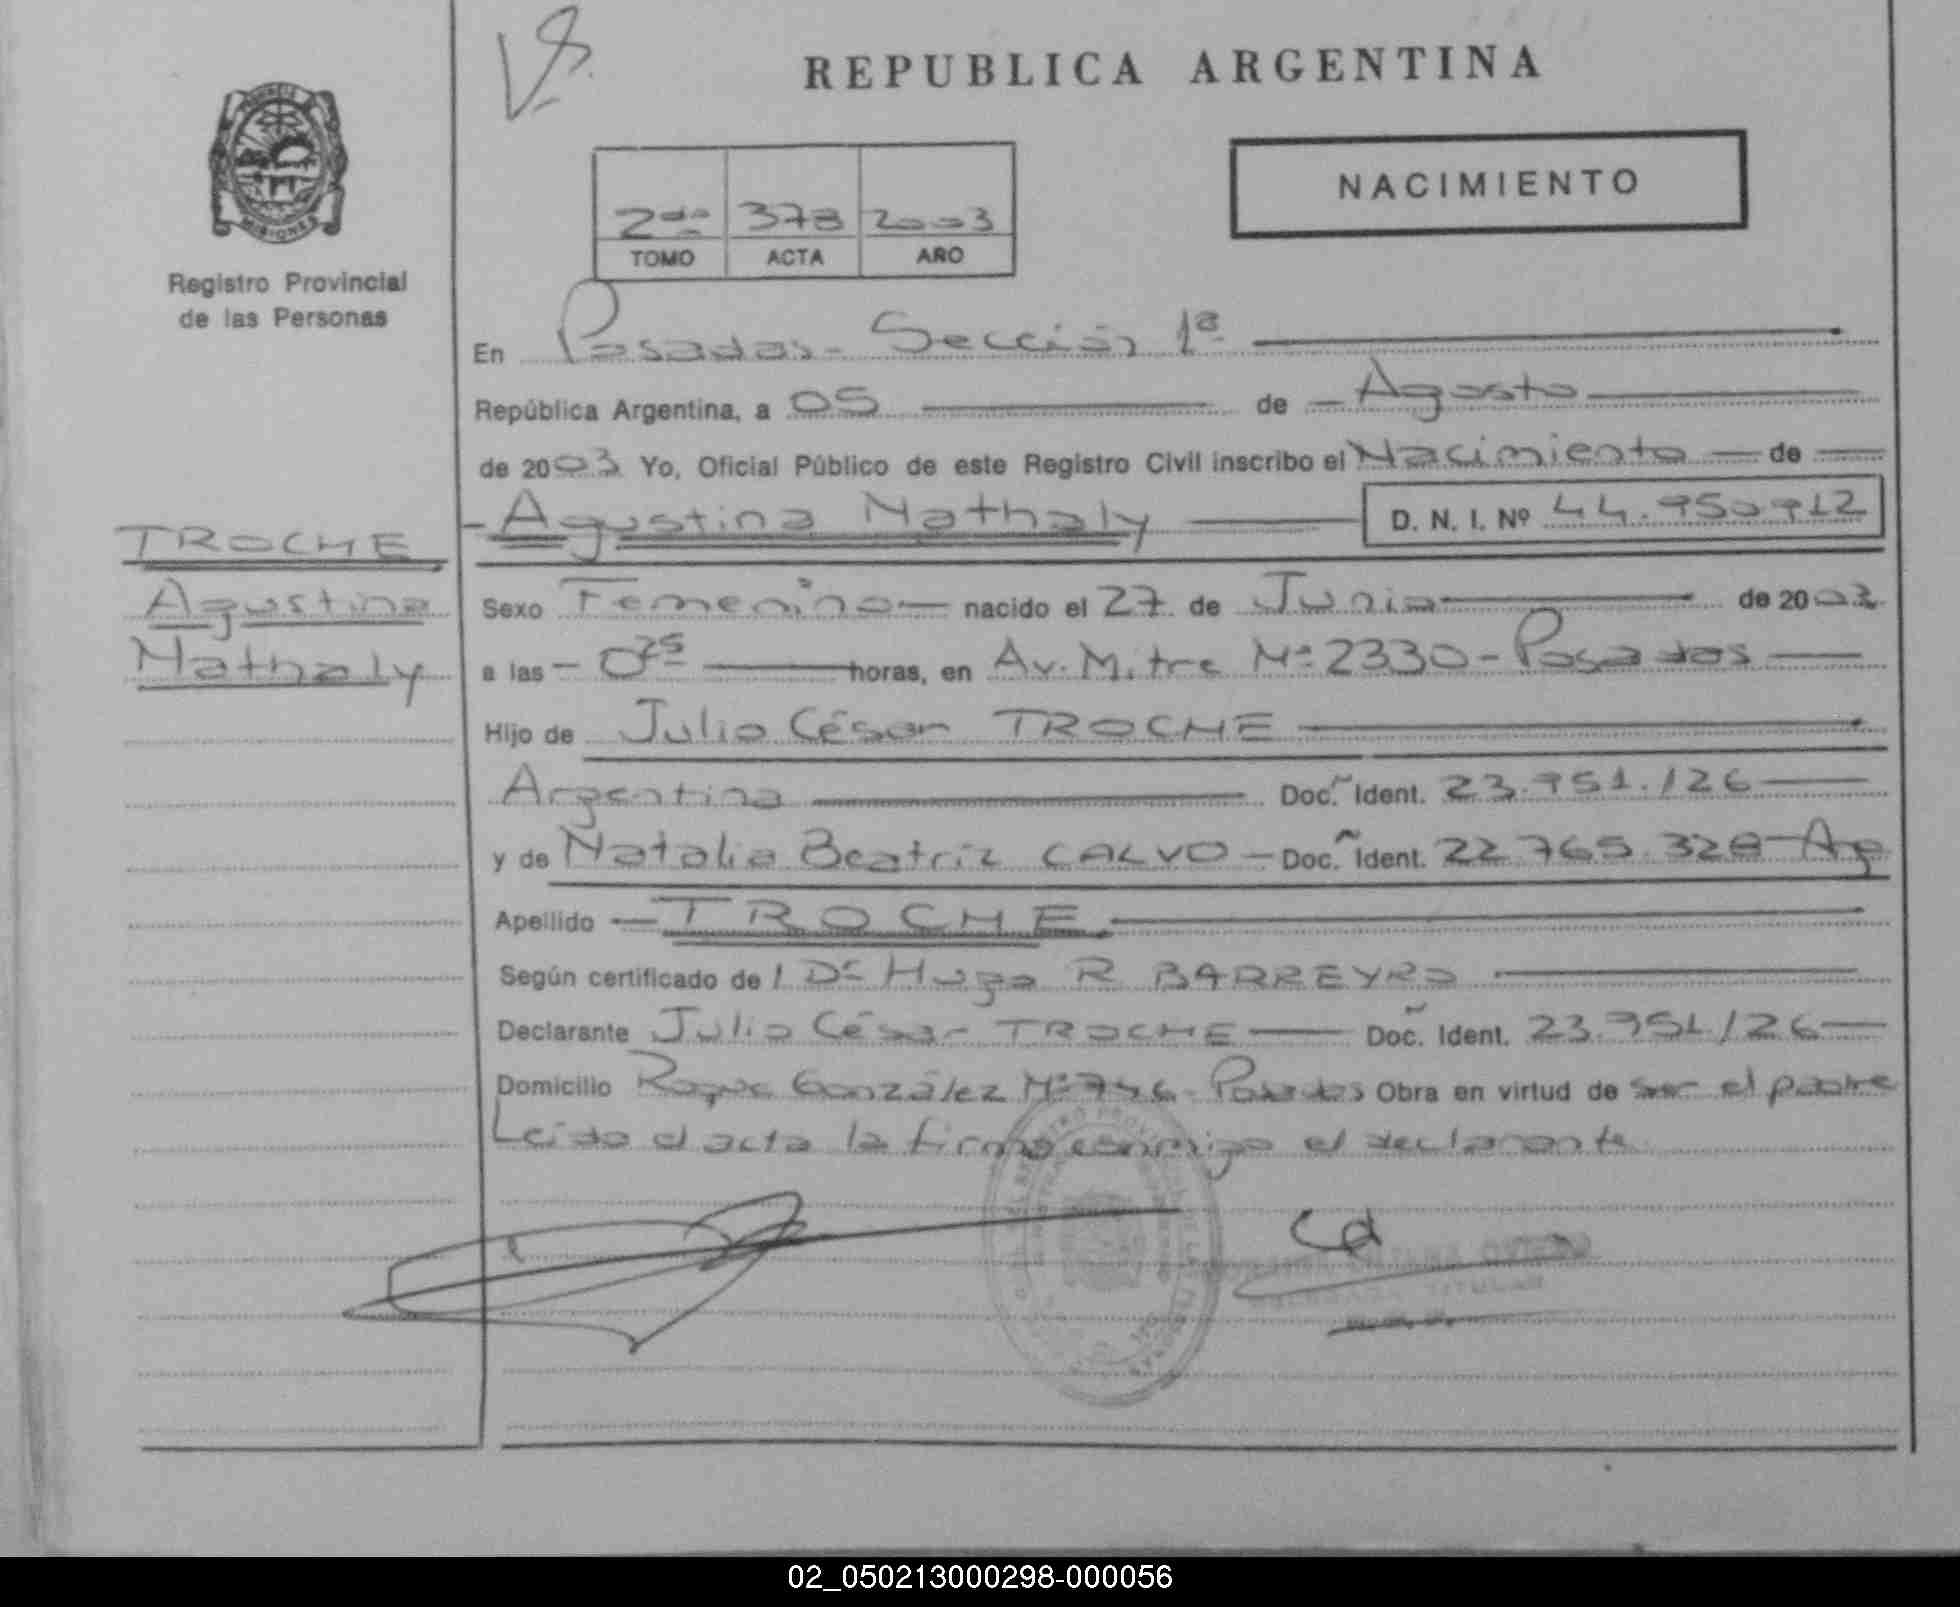 REPUBLICA ARGENTINA
NACIMIENTO
2do 378 2003
TOMO ACTA AÑO
PROVINCIA DE
MISIONES
Registro Provincial
de las Personas
En Posadas - Sección 1ª
República Argentina, a 05 de Agosto
de 2003 Yo, Oficial Público de este Registro Civil inscribo el Nacimiento de
TROCHE
Agustina
Nathaly
Agustina Nathaly D. N. I. Nº 44.950912
Sexo Femenino nacido el 27 de Junio de 2003
a las 0 25 horas, en Av. Mitre Nº 2330 - Posadas
Hijo de Julio César TROCHE
Argentina Doc. Ident. 23.951.126
y de Natalia Beatriz CALVO - Doc. Ident. 22.765.328 - Arg
Apellido TROCHE
Según certificado de / Dr Hugo R BARREYRO
Declarante Julio César TROCHE Doc. Ident. 23.951/26
Domicilio Roque González Nº 746 - Posadas Obra en virtud de ser el padre
Leida el acta la firma conmigo el declarante
TITULAR
02_050213000298-000056